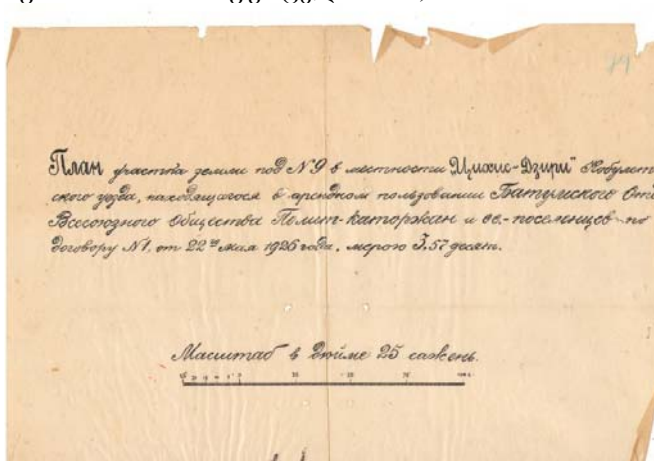 План участка земли под №9 в местности „Цихис-Дзири" Кобулет
ского уезда, находящагося в арендном пользовании Батумского Отд
Всесоюзного Общества Полит-каторжан и сс.-поселенцев по
договору №1, от 22го мая 1926 года, мерою 3.57 десят.
Масштаб в дюйме 25 сажень.